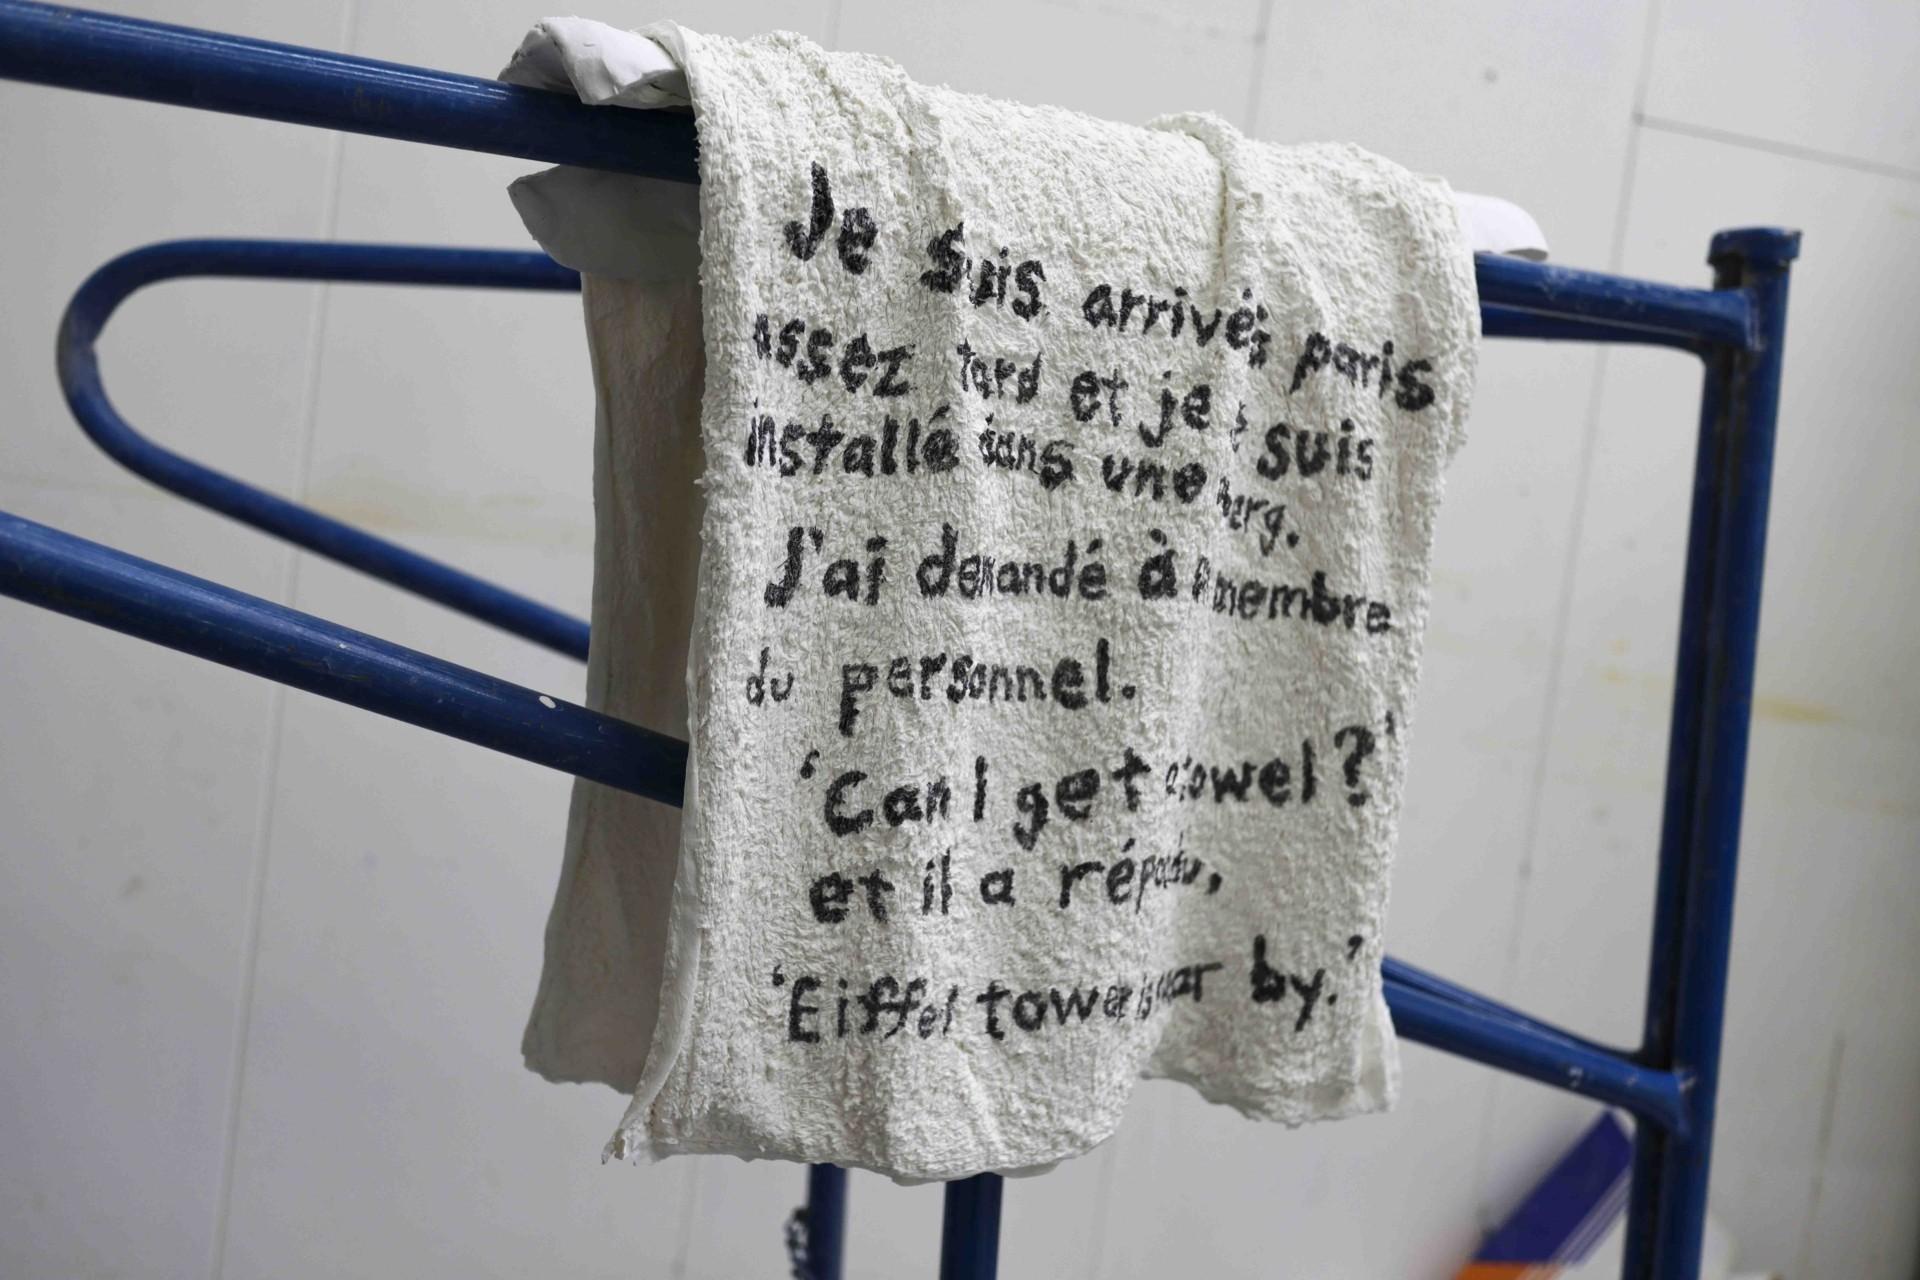 Je suis arrivé à paris
assez tard et je suis
installé dans une
J'ai demandé à membre
du personnel.
'Can I get a towel?'
et il a répondu,
'Eiffel tower is near by.'